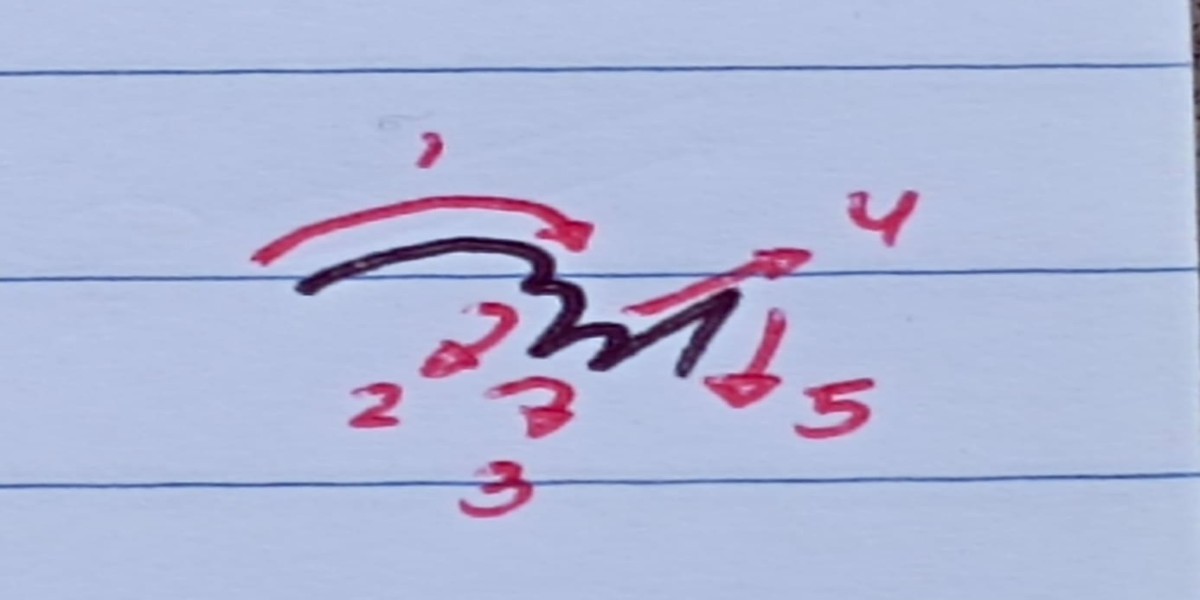 1
4
2 5
3